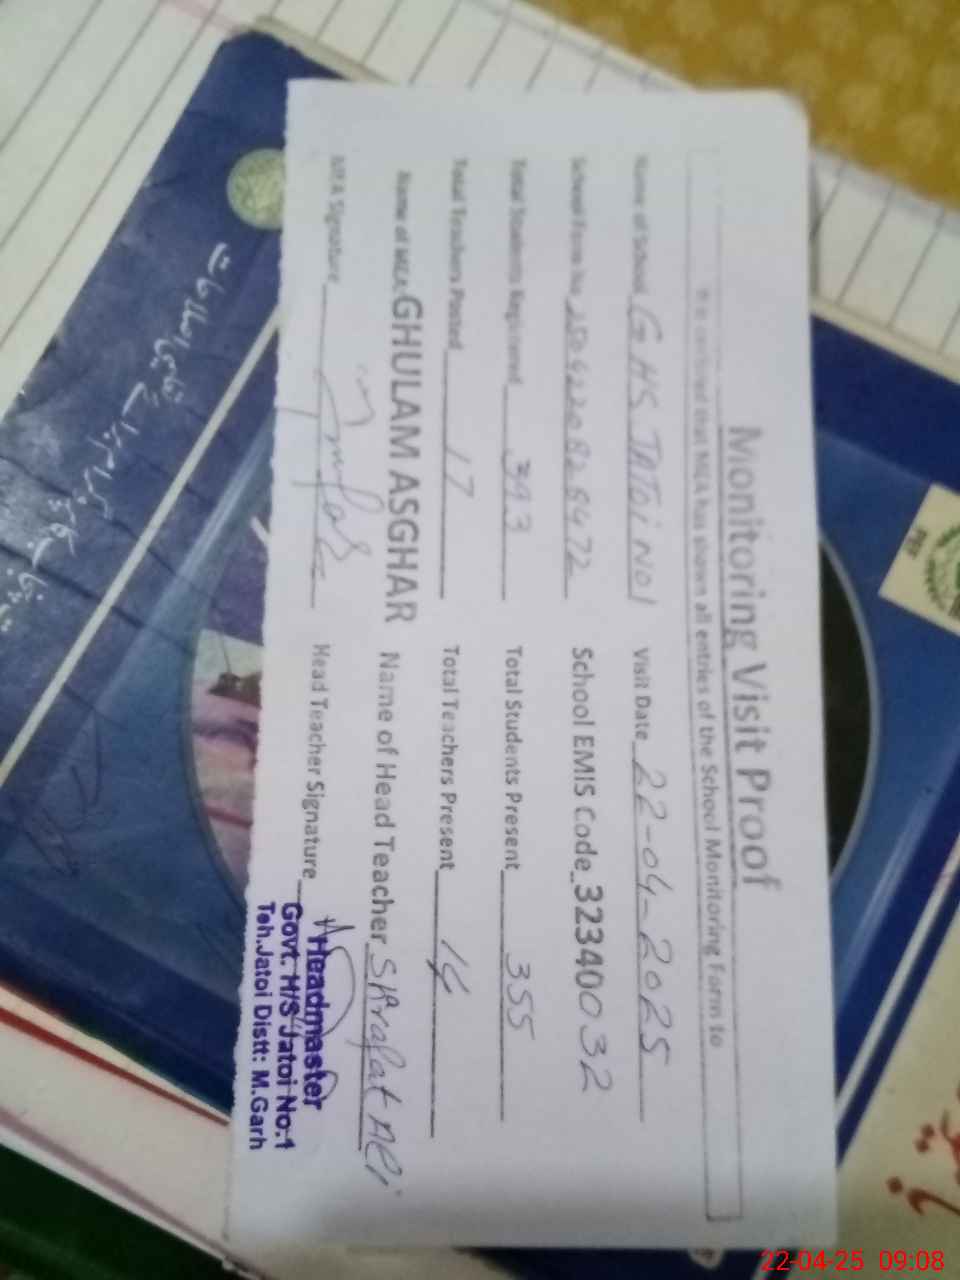 Monitoring Visit Proof
It is certified that MEA has shown all entries of the School Monitoring Form to
Name of School G.HS. JATOi NO1 Visit Date 22-04-2025
School Form No School EMIS Code 32340032
Total Students Registered 393 Total Students Present 355
Total Teachers Posted 17 Total Teachers Present 14
Name of MEA GHULAM ASGHAR Name of Head Teacher Shrafat Ali
MEA Signature Head Teacher Signature
Headmaster
Govt. H/S Jatoi No:1
Teh.Jatoi Distt: M.Garh
22-04-25 09:08